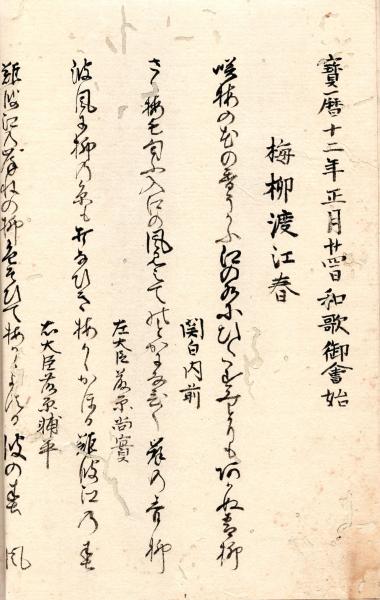 寶暦十二年正月廿四日和歌御會始
梅柳渡江春
咲梅の花の香うかふ江の水にひたすみとりもあかぬ青柳
関白内前
さく梅も匂ふ入江の風みえてのとかになひく岸の青柳
左大臣藤原尚實
波風に柳の糸も打なひき梅かゝかほる難波江の春
右大臣藤原輔平
難波江の岸根の柳
波の春風